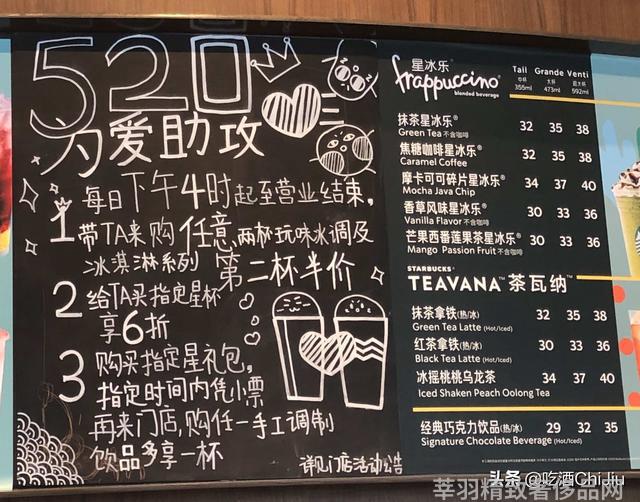 520
为爱助攻
每日下午4时起至营业结束,
1 带TA来购任意两杯玩味冰调及
冰淇淋系列 第二杯半价
2 给TA买指定星杯
享6折
3 购买指定星礼包,
指定时间内凭小票
再来门店,购任一手工调制
饮品多享一杯
详见门店活动公告
星冰乐®
frappuccino®
blended beverage
Tall Grande Venti
中杯 大杯 超大杯
355ml 473ml 592ml
抹茶星冰乐® 32 35 38
Green Tea 不含咖啡
焦糖咖啡星冰乐® 32 35 38
Caramel Coffee
摩卡可可碎片星冰乐® 34 37 40
Mocha Java Chip
香草风味星冰乐® 30 33 36
Vanilla Flavor 不含咖啡
芒果西番莲果茶星冰乐® 30 33 36
Mango Passion Fruit 不含咖啡
STARBUCKS®
TEAVANA™ 茶瓦纳™
抹茶拿铁(热/冰) 32 35 38
Green Tea Latte (Hot/Iced)
红茶拿铁(热/冰) 30 33 36
Black Tea Latte (Hot/Iced)
冰摇桃桃乌龙茶 34 37 40
Iced Shaken Peach Oolong Tea
经典巧克力饮品(热/冰) 29 32 35
Signature Chocolate Beverage (Hot/Iced)
头条 @吃酒ChiJiu
莘羽精致奢侈品网